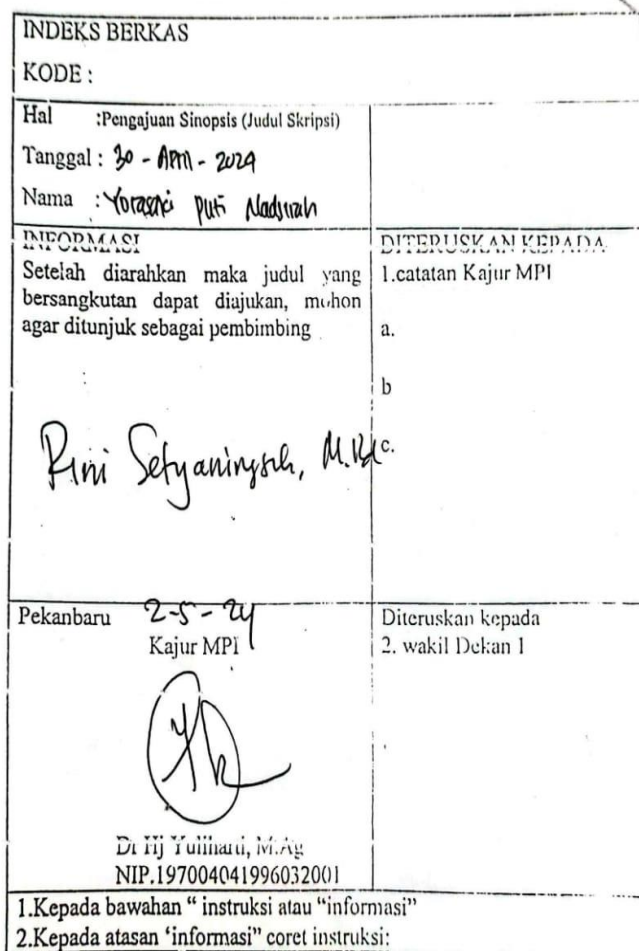 INDEKS BERKAS
KODE :
Hal :Pengajuan Sinopsis (Judul Skripsi)
Tanggal : 30 - April - 2024
Nama : Puti
INFORMASI
Setelah diarahkan maka judul yang
bersangkutan dapat diajukan, mohon
agar ditunjuk sebagai pembimbing
Rini Setyaningsih, M.Pd
DITERUSKAN KEPADA
1.catatan Kajur MPI
a.
b
c.
Pekanbaru 2-5-24
Kajur MPI
Dr Hj Yuliharti, M.Ag
NIP.197004041996032001
Diteruskan kepada
2. wakil Dekan 1
1.Kepada bawahan “ instruksi atau “informasi”
2.Kepada atasan ‘informasi” coret instruksi: